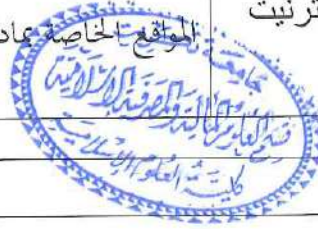 ترنيت
المواقع الخاصة بماد
جامعة
قسم العلوم المالية والمصرفية الإسلامية
كلية العلوم الإسلامية